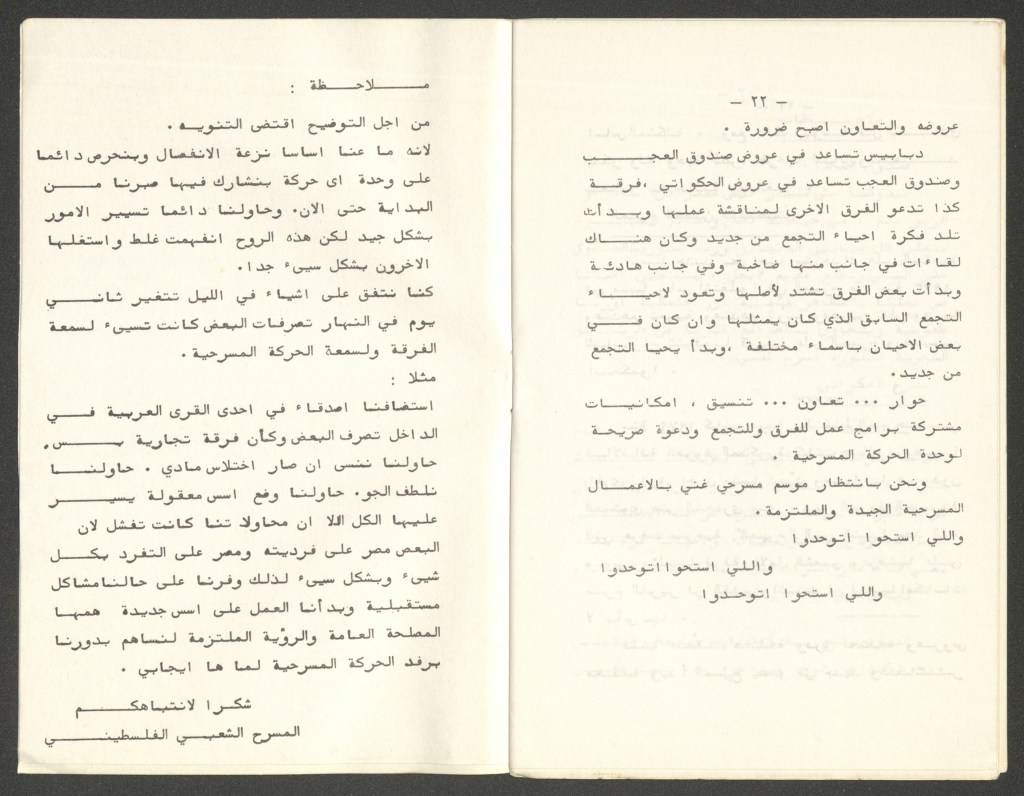 - ٢٢ -
عروضه والتعاون اصبح ضرورة .
دبابيس تساعد في عروض صندوق العجب
وصندوق العجب تساعد في عروض الحكواتي ،فرقة
كذا تدعو الفرق الاخرى لمناقشة عملها وبدأت
تلد فكرة احياء التجمع من جديد وكان هناك
لقاءات في جانب منها صاخبة وفي جانب هادئة
وبدأت بعض الفرق تشتد لأصلها وتعود لاحياء
التجمع السابق الذي كان يمثلها وان كان في
بعض الاحيان باسماء مختلفة ،وبدأ يحيا التجمع
من جديد.
حوار ... تعاون ... تنسيق ، امكانيات
مشتركة برامج عمل للفرق وللتجمع ودعوة صريحة
لوحدة الحركة المسرحية .
ونحن بانتظار موسم مسرحي غني بالاعمال
المسرحية الجيدة والملتزمة.
واللي استحوا اتوحدوا
واللي استحوا اتوحدوا
واللي استحوا اتوحدوا
ملاحظة :
من اجل التوضيح اقتضى التنويه.
لانه ما عنا اساسا نزعة الانفصال وبنحرص دائما
على وحدة اى حركة بنشارك فيها صبرنا من
البداية حتى الان. وحاولنا دائما تسيير الامور
بشكل جيد لكن هذه الروح انفهمت غلط واستغلها
الاخرون بشكل سيىء جدا.
كنا نتفق على اشياء في الليل تتغير ثاني
يوم في النهار تصرفات البعض كانت تسيىء لسمعة
الفرقة ولسمعة الحركة المسرحية.
مثلا :
استضافنا اصدقاء في احدى القرى العربية في
الداخل تصرف البعض وكأن فرقة تجارية بس.
حاولنا ننسى ان صار اختلاس مادي . حاولنا
نلطف الجو. حاولنا وضع اسس معقولة يسير
عليها الكل الا ان محاولاتنا كانت تفشل لان
البعض مصر على فرديته ومصر على التفرد بكل
شيىء وبشكل سيىء لذلك وفرنا على حالنامشاكل
مستقبلية وبدأنا العمل على اسس جديدة همها
المصلحة العامة والرؤية الملتزمة لنساهم بدورنا
برفد الحركة المسرحية لما ها ايجابي .
شكرا لانتباهكم
المسرح الشعبي الفلسطيني